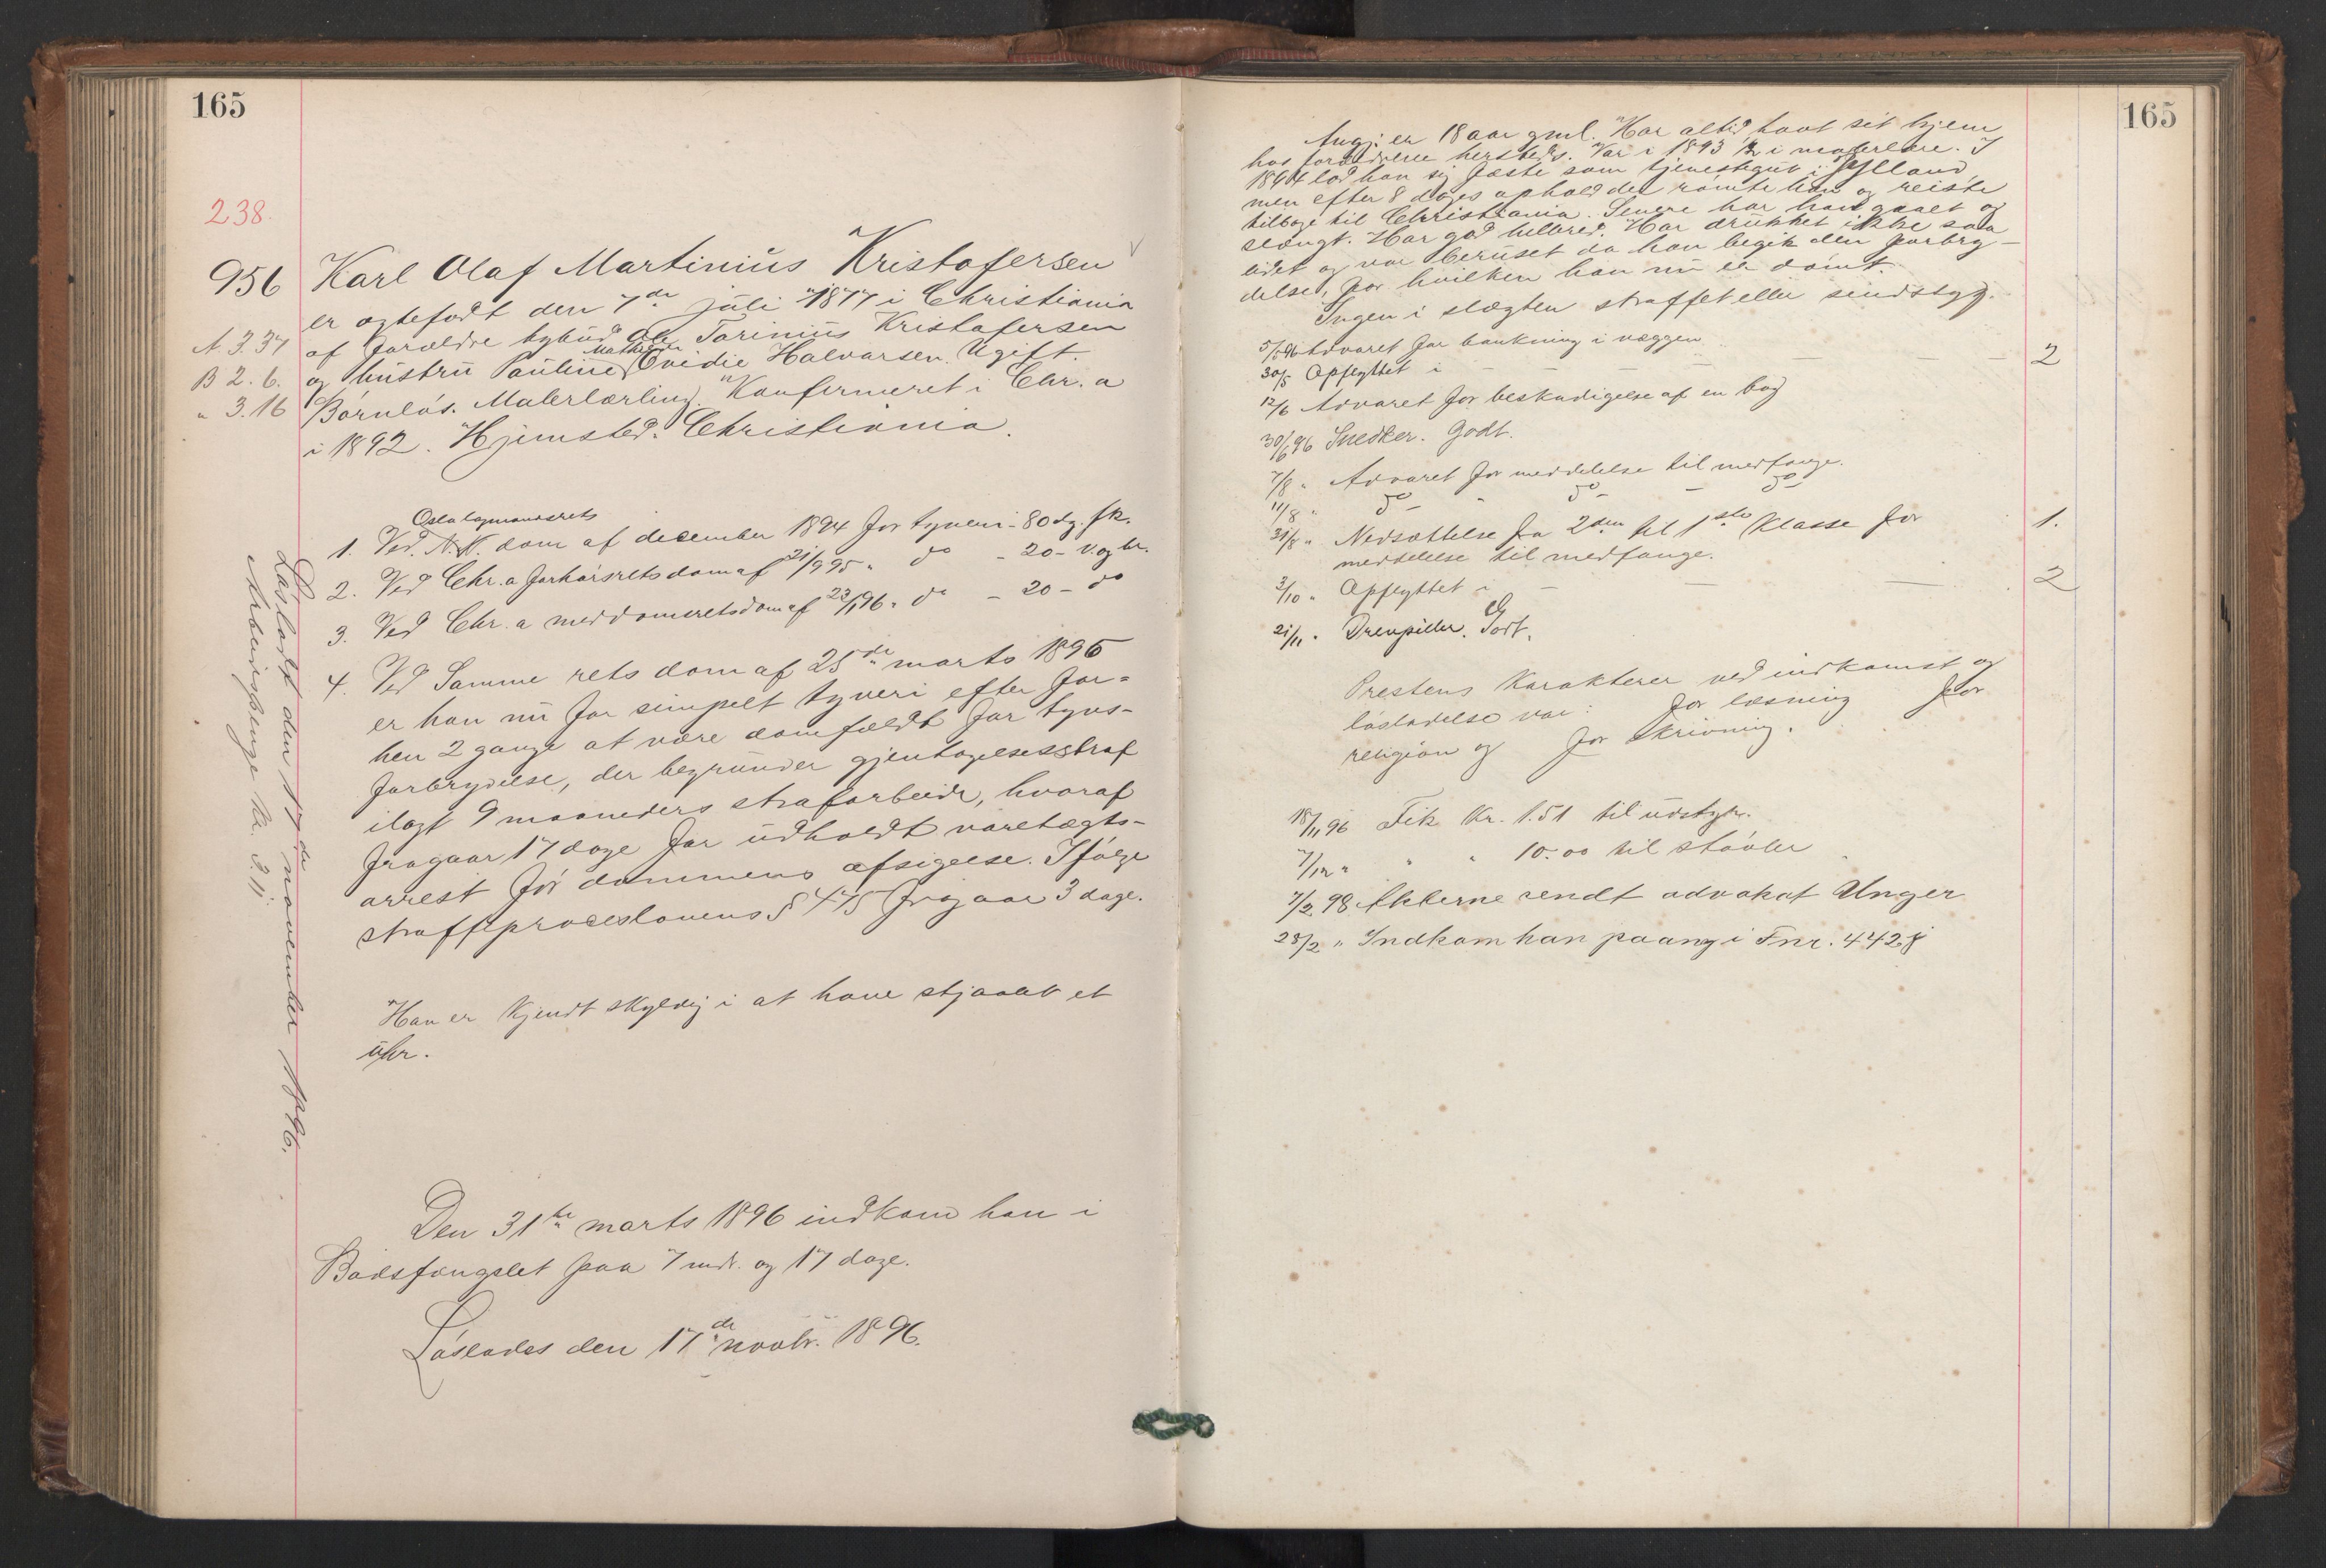 165
238.
956 Karl Olaf Martinius Kristofersen
er ægtefødt den 7de juli 1877 i Christiania
A 3.37 af forældre bybud Ole Torinius Kristofersen
Mathea
B 2.6. og hustru Pauline Ovidie Halvorsen. Ugift.
" 3.16 Børnløs. Malerlærling. Konfirmeret i Chr.a
i 1892. Hjemsted: Christiania.
Oslo lagmandsrets
1. Ved N.N. dom af december 1894 for tyveri - 80 dg. fk.
2. Ved Chr.a forhørsretsdom af 21/9 95 " do - 20 - v og br.
3. Ved Chr.a meddomsretsdom af 23/1 96 " do - 20 - do
4. Ved Samme rets dom af 25de marts 1896
er han nu for simpelt tyveri efter for=
hen 2 gange at være domfældt for tyvs-
forbrydelse, der begrunder gjentagelsesstraf
ilagt 9 maaneders strafarbeide, hvoraf
fragaar 17 dage for udholdt varetægts-
arrest før dommens afsigelse. Ifølge
straffeproceslovens § 475 fragaar 3 dage.
Han er kjendt skyldig i at have stjaalet et
uhr.
Den 31te marts 1896 indkom han i
Bodsfængslet paa 7 mdr. og 17 dage.
Løslades den 17de novbr. 1896.
Løsladt den 17de november 1896.
Arbeidspenge kr. 3.11
165
Angj. er 18 aar gml. Har altid havt sit hjem
hos forældrene hersteds. Var i 1893 1/2 i malerlære. I
1894 lod han sig fæste som tjenestegut i Jylland,
men efter 8 dages ophold der rømte han og reiste
tilbage til Christiania. Senere har han gaaet og
slængt. Har god helbred. Har drukket ikke saa
lidet og var beruset da han begik den forbry-
delse, for hvilken han nu er dømt.
Ingen i slægten straffet eller sindssyg.
5/5 96 Advaret for bankning i væggen
30/5 Opflyttet i - - - - - 2
12/6 Advaret for beskadigelse af en bog
30/6 96 Snedker. Godt.
7/8 " Advaret for meddelelse til medfange.
11/8 " do " do - - do
31/8 " Nedsættelse fra 2den til 1ste klasse for 1.
meddelelse til medfange.
3/10 " Opflyttet i - - - 2
21/11 " Godt.
Prestens karakterer ved indkomst og
løsladelse var: for læsning for
religion og for skrivning.
18/11 96 Fik kr. 1.51 til udstyr.
7/12 " " " 10.00 til støvler
7/2 98 Akterne sendt advokat Unger
28/2 " Indkom han paany i Fnr. 442